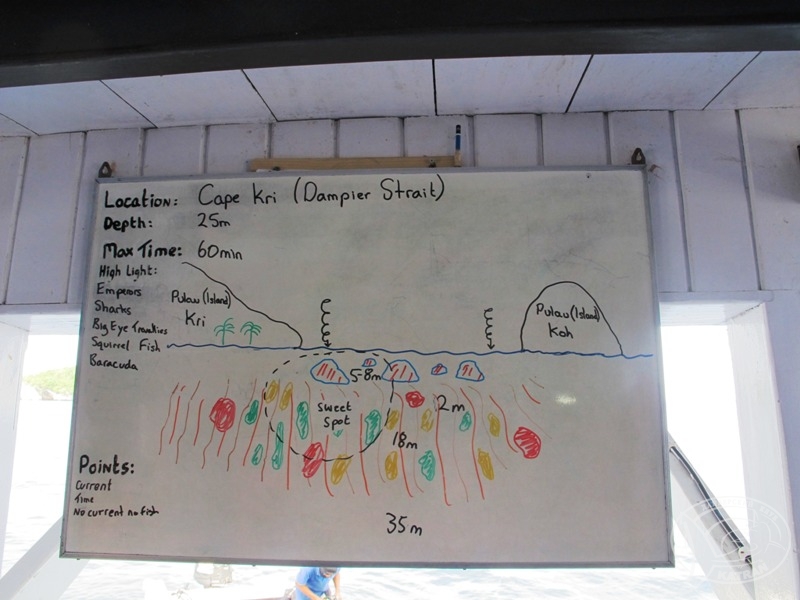 Location: Cape Kri (Dampier Strait)
Depth: 25m
Max Time: 60min
High Light:
Emperors
Sharks
Big Eye Travalies
Squirrel Fish
Baracuda
Pulau (Island)
Kri
Pulau (Island)
Koh
5-8m
Sweet
Spot
2m
18m
35m
Points:
Current
Time
No current no fish